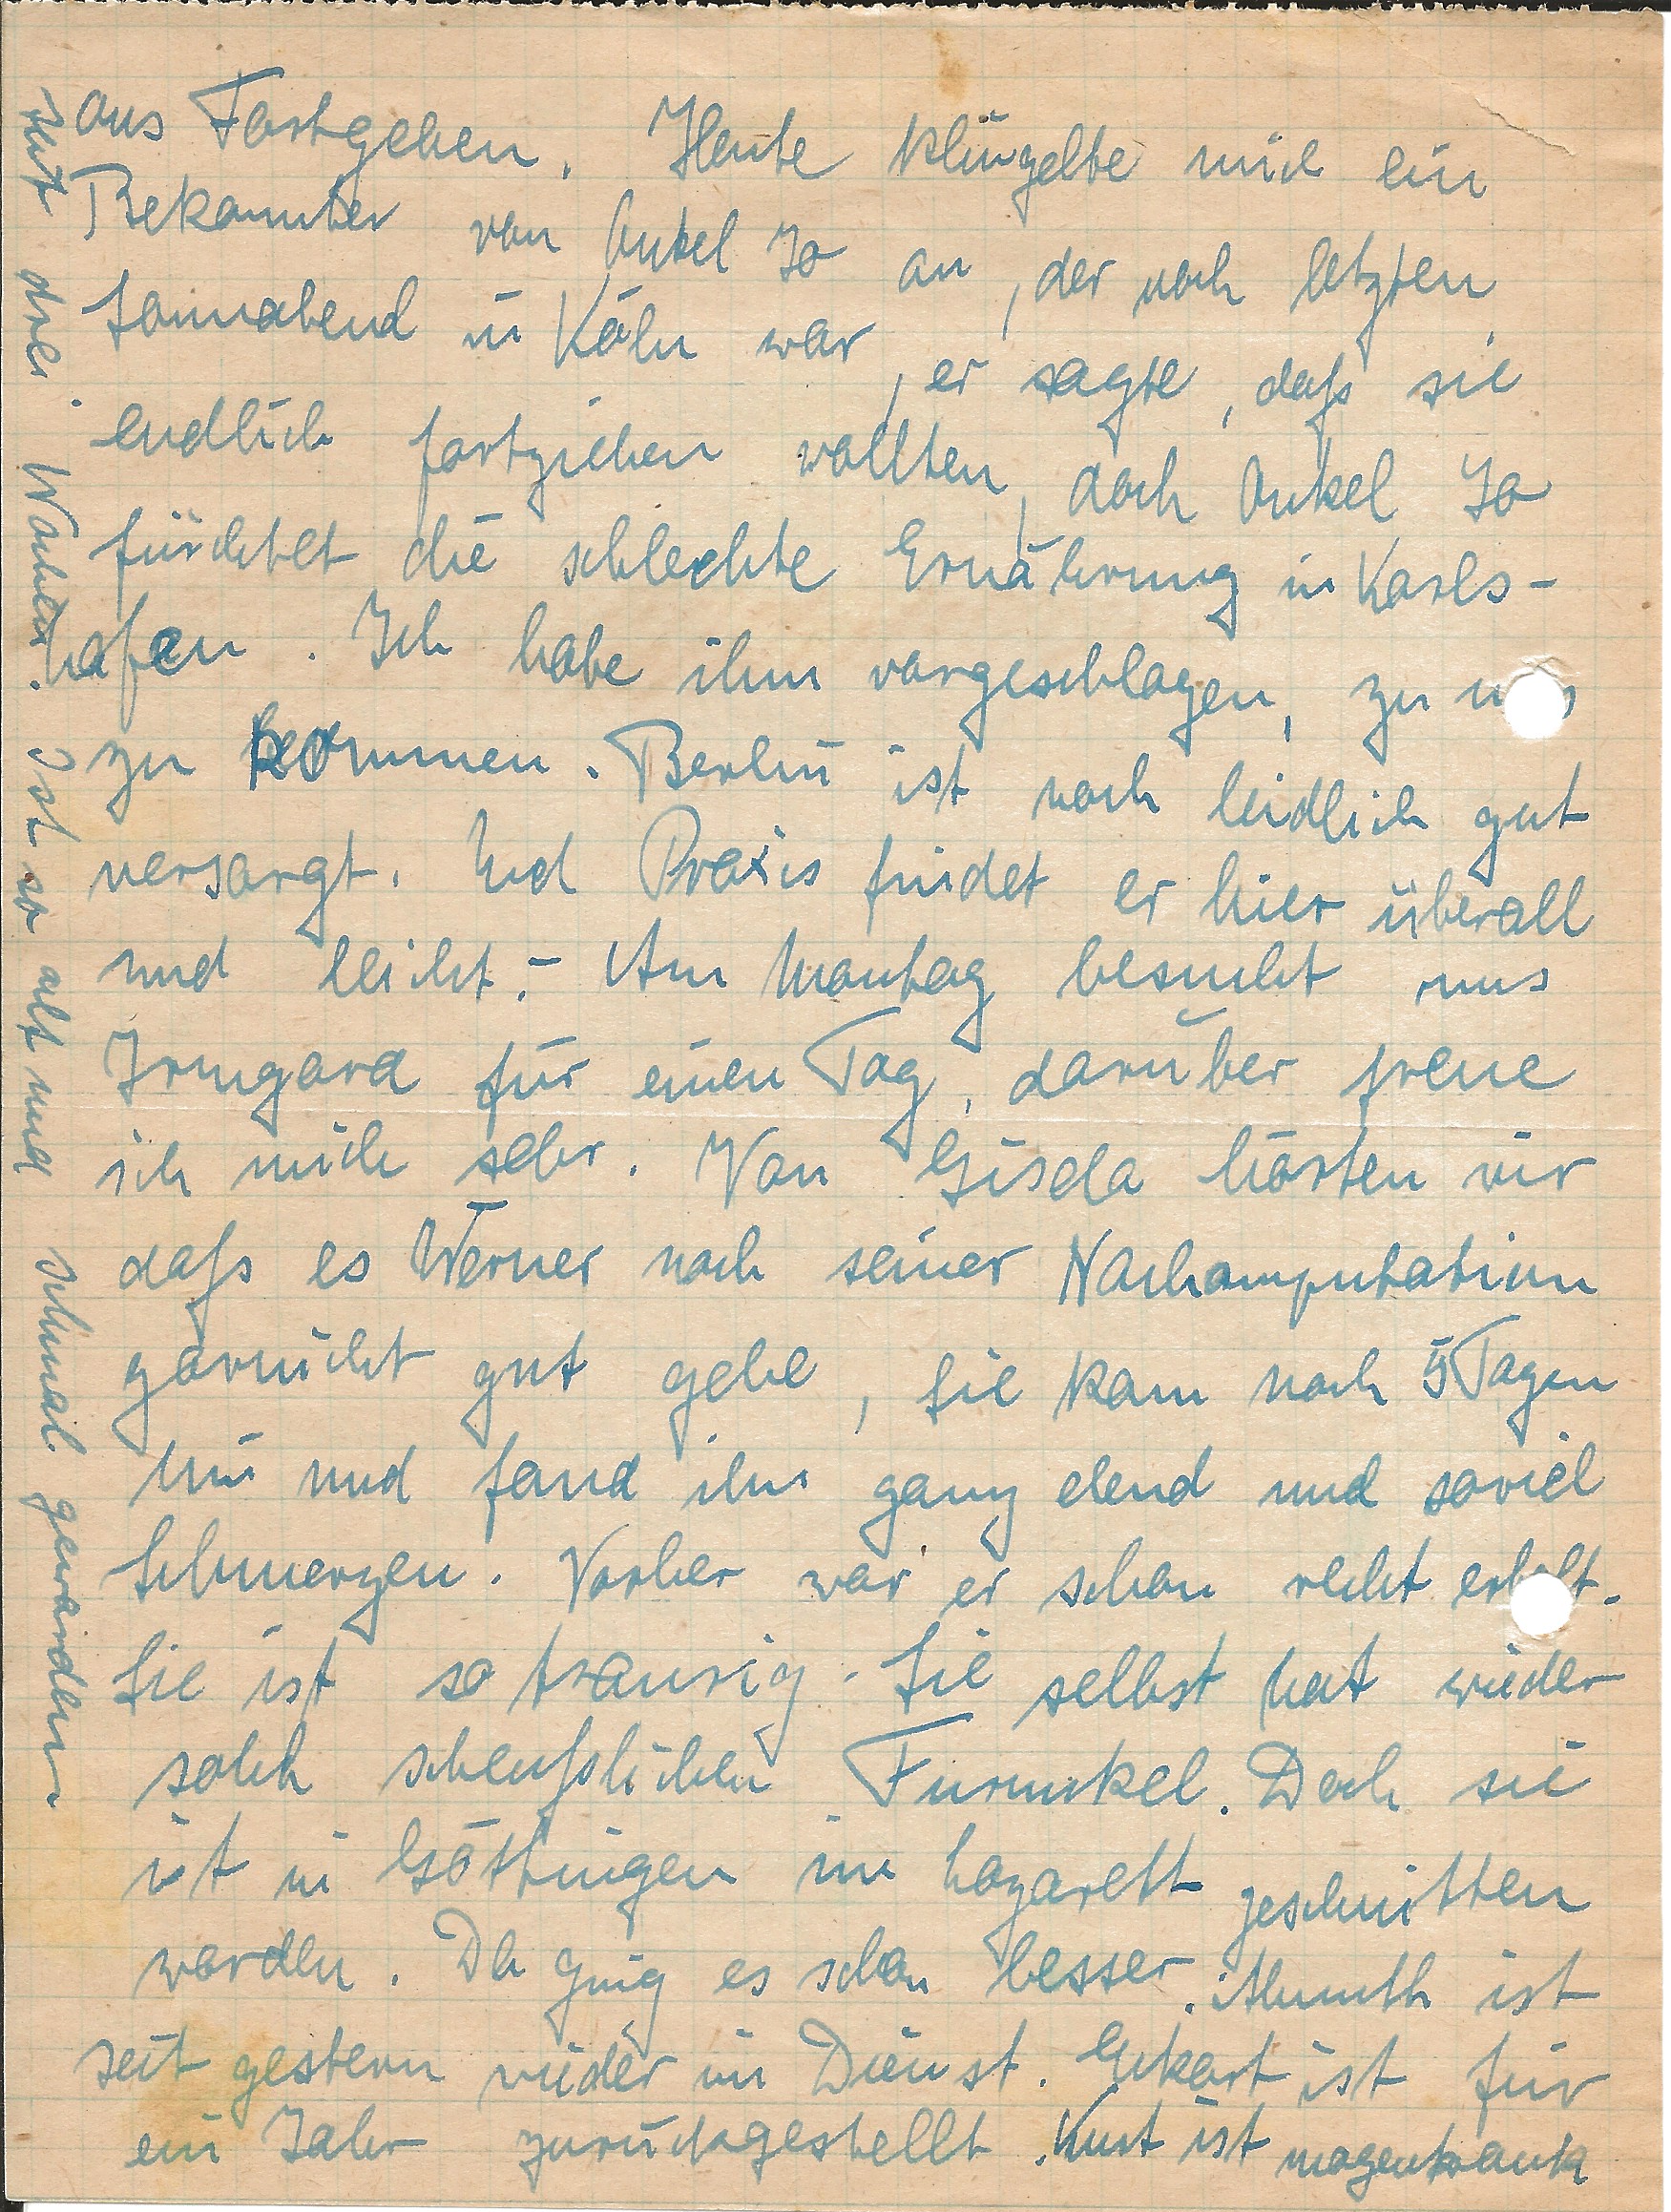 ans Fortgehen. Heute klingelte mich ein
Bekannter von Onkel Jo an, der noch letzten
Sonnabend in Köln war, er sagte, daß sie
endlich fortziehen wollten, doch Onkel Jo
fürchtet die schlechte Ernährung in Karls-
hafen. Ich habe ihm vorgeschlagen, zu uns
zu kommen. Berlin ist noch leidlich gut
versorgt. Und Praxis findet er hier überall
und leicht. - Am Montag besucht uns
Irmgard für einen Tag, darüber freue
ich mich sehr. Von Gisela hörten wir
daß es Werner nach seiner Nachamputation
garnicht gut gehe, sie kam nach 5 Tagen
hin und fand ihn ganz elend und soviel
Schmerzen. Vorher war er schon recht erholt.
Sie ist so traurig. Sie selbst hat wieder
solch scheußlichen Furunkel. Doch sie
ist in Göttingen im Lazarett geschnitten
worden. Da ging es schon besser. Almuth ist
seit gestern wieder im Dienst. Ekart ist für
ein Jahr zurückgestellt. Kurt ist magenkrank
seit drei Wochen. Ist so alt und schmal geworden